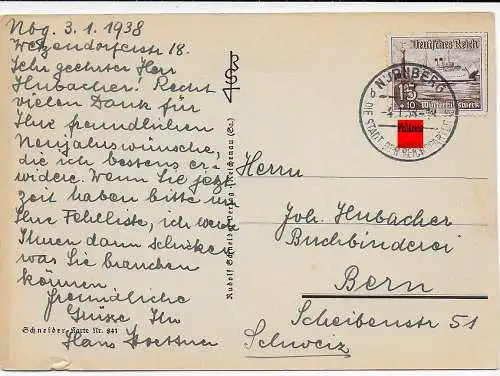 Nbg. 3.1.1938
Wetzendorferstr 18.
Sehr geehrter Herr
Hubacher! Recht
vielen Dank für
Ihre freundlichen
Neujahrswünsche,
die ich bestens er-
widere. Wenn Sie jetzt
Zeit haben bitte um
Ihre Fehlliste, ich werde
Ihnen dann schicken
was Sie brauchen
können.
Freundliche
Grüsse Ihr
Hans
Schneider-Karte Nr. 841
Rudolf Schneider Verlag, Reichenau (Sa.)
Deutsches Reich
15
+10 Winterhilfswerk
NÜRNBERG
DIE STADT DER REICHSPARTEITAGE
Herrn
Joh. Hubacher
Buchbinderei
Bern
Scheibenstr 51
Schweiz